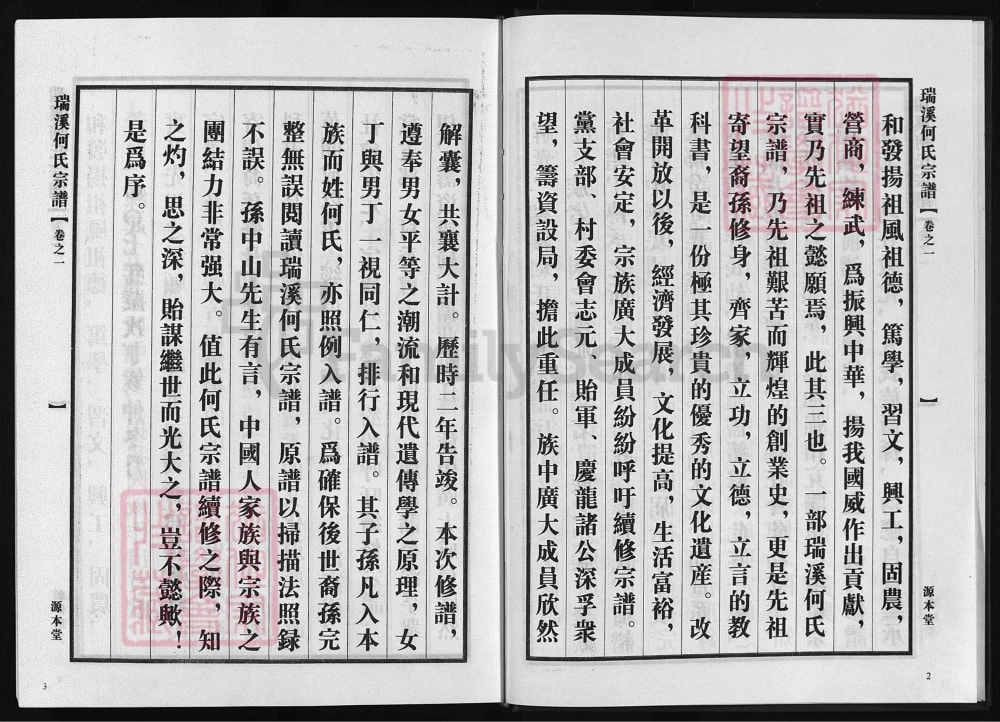 瑞溪何氏宗譜【卷之一
】
源本堂
2
和發揚祖風祖德，篤學，習文，興工，固農，
營商，練武，爲振興中華，揚我國威作出貢獻，
實乃先祖之懿願焉，此其三也。一部瑞溪何氏
宗譜，乃先祖艱苦而輝煌的創業史，更是先祖
寄望裔孫修身，齊家，立功，立德，立言的教
科書，是一份極其珍貴的優秀的文化遺産。改
革開放以後，經濟發展，文化提高，生活富裕，
社會安定，宗族廣大成員紛紛呼吁續修宗譜。
黨支部、村委會志元、貽軍、慶龍諸公深孚衆
望，籌資設局，擔此重任。族中廣大成員欣然
解囊，共襄大計。歷時二年告竣。本次修譜，
遵奉男女平等之潮流和現代遺傳學之原理，女
丁與男丁一視同仁，排行入譜。其子孫凡入本
族而姓何氏，亦照例入譜。爲確保後世裔孫完
整無誤閲讀瑞溪何氏宗譜，原譜以掃描法照録
不誤。孫中山先生有言，中國人家族與宗族之
團結力非常强大。值此何氏宗譜續修之際，知
之灼，思之深，貽謀繼世而光大之，豈不懿歟！
是爲序。
瑞溪何氏宗譜【卷之一
】
源本堂
3
FamilySearch